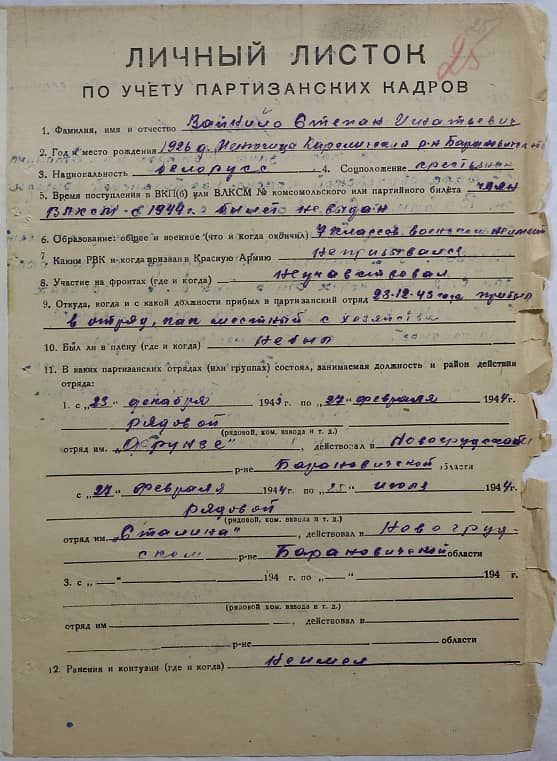 25
ЛИЧНЫЙ ЛИСТОК
ПО УЧЕТУ ПАРТИЗАНСКИХ КАДРОВ
1. Фамилия, имя и отчество Степан Игнатьевич
2. Год и место рождения 1926 г. Кареличский р-н Барановической
3. Национальность белорусс 4. Соцположение крестьянин
5. Время поступления в ВКП(б) или ВЛКСМ № комсомольского или партийного билета член
ВЛКСМ с 1944 г билет не выдан
6. Образование: общее и военное (что и когда окончил) 7 классов военного не имеет
7. Каким РВК и когда призван в Красную Армию Непризывался
8. Участие на фронтах (где и когда) Неучавствовал
9. Откуда, когда и с какой должности прибыл в партизанский отряд 23-12-43 года прибыл
в отряд, как местный с хозяйства
10. Был ли в плену (где и когда) Небыл
11. В каких партизанских отрядах (или группах) состоял, занимаемая должность и район действия
отряда:
1. с „23" декабря 1943 г по „27" февраля 1944 г.
рядовой
(рядовой, ком. взвода и т. д.)
отряд им. , действовал в Новогрудском
р-не Барановической области
с „27" февраля 1944 г по „25" июля 1944 г.
рядовой
(рядовой, ком. взвода и т. д.)
отряд им. „Сталина" , действовал в Новогруд-
ском р-не Барановической области
3. с „—" 194 г. по „—" 194 г.
(рядовой, ком. взвода и т. д.)
отряд им , действовал в
р-не области
12. Ранения и контузии (где и когда) Неимел